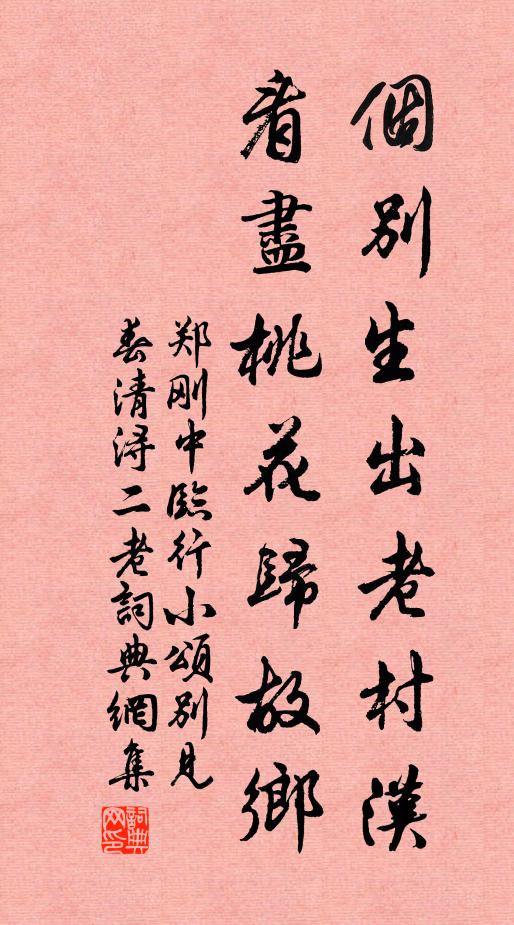 個別生出老村漢
看盡桃花歸故鄉
郑刚中臨行小頌別見
春清浔二老詞典網集
詞典网印